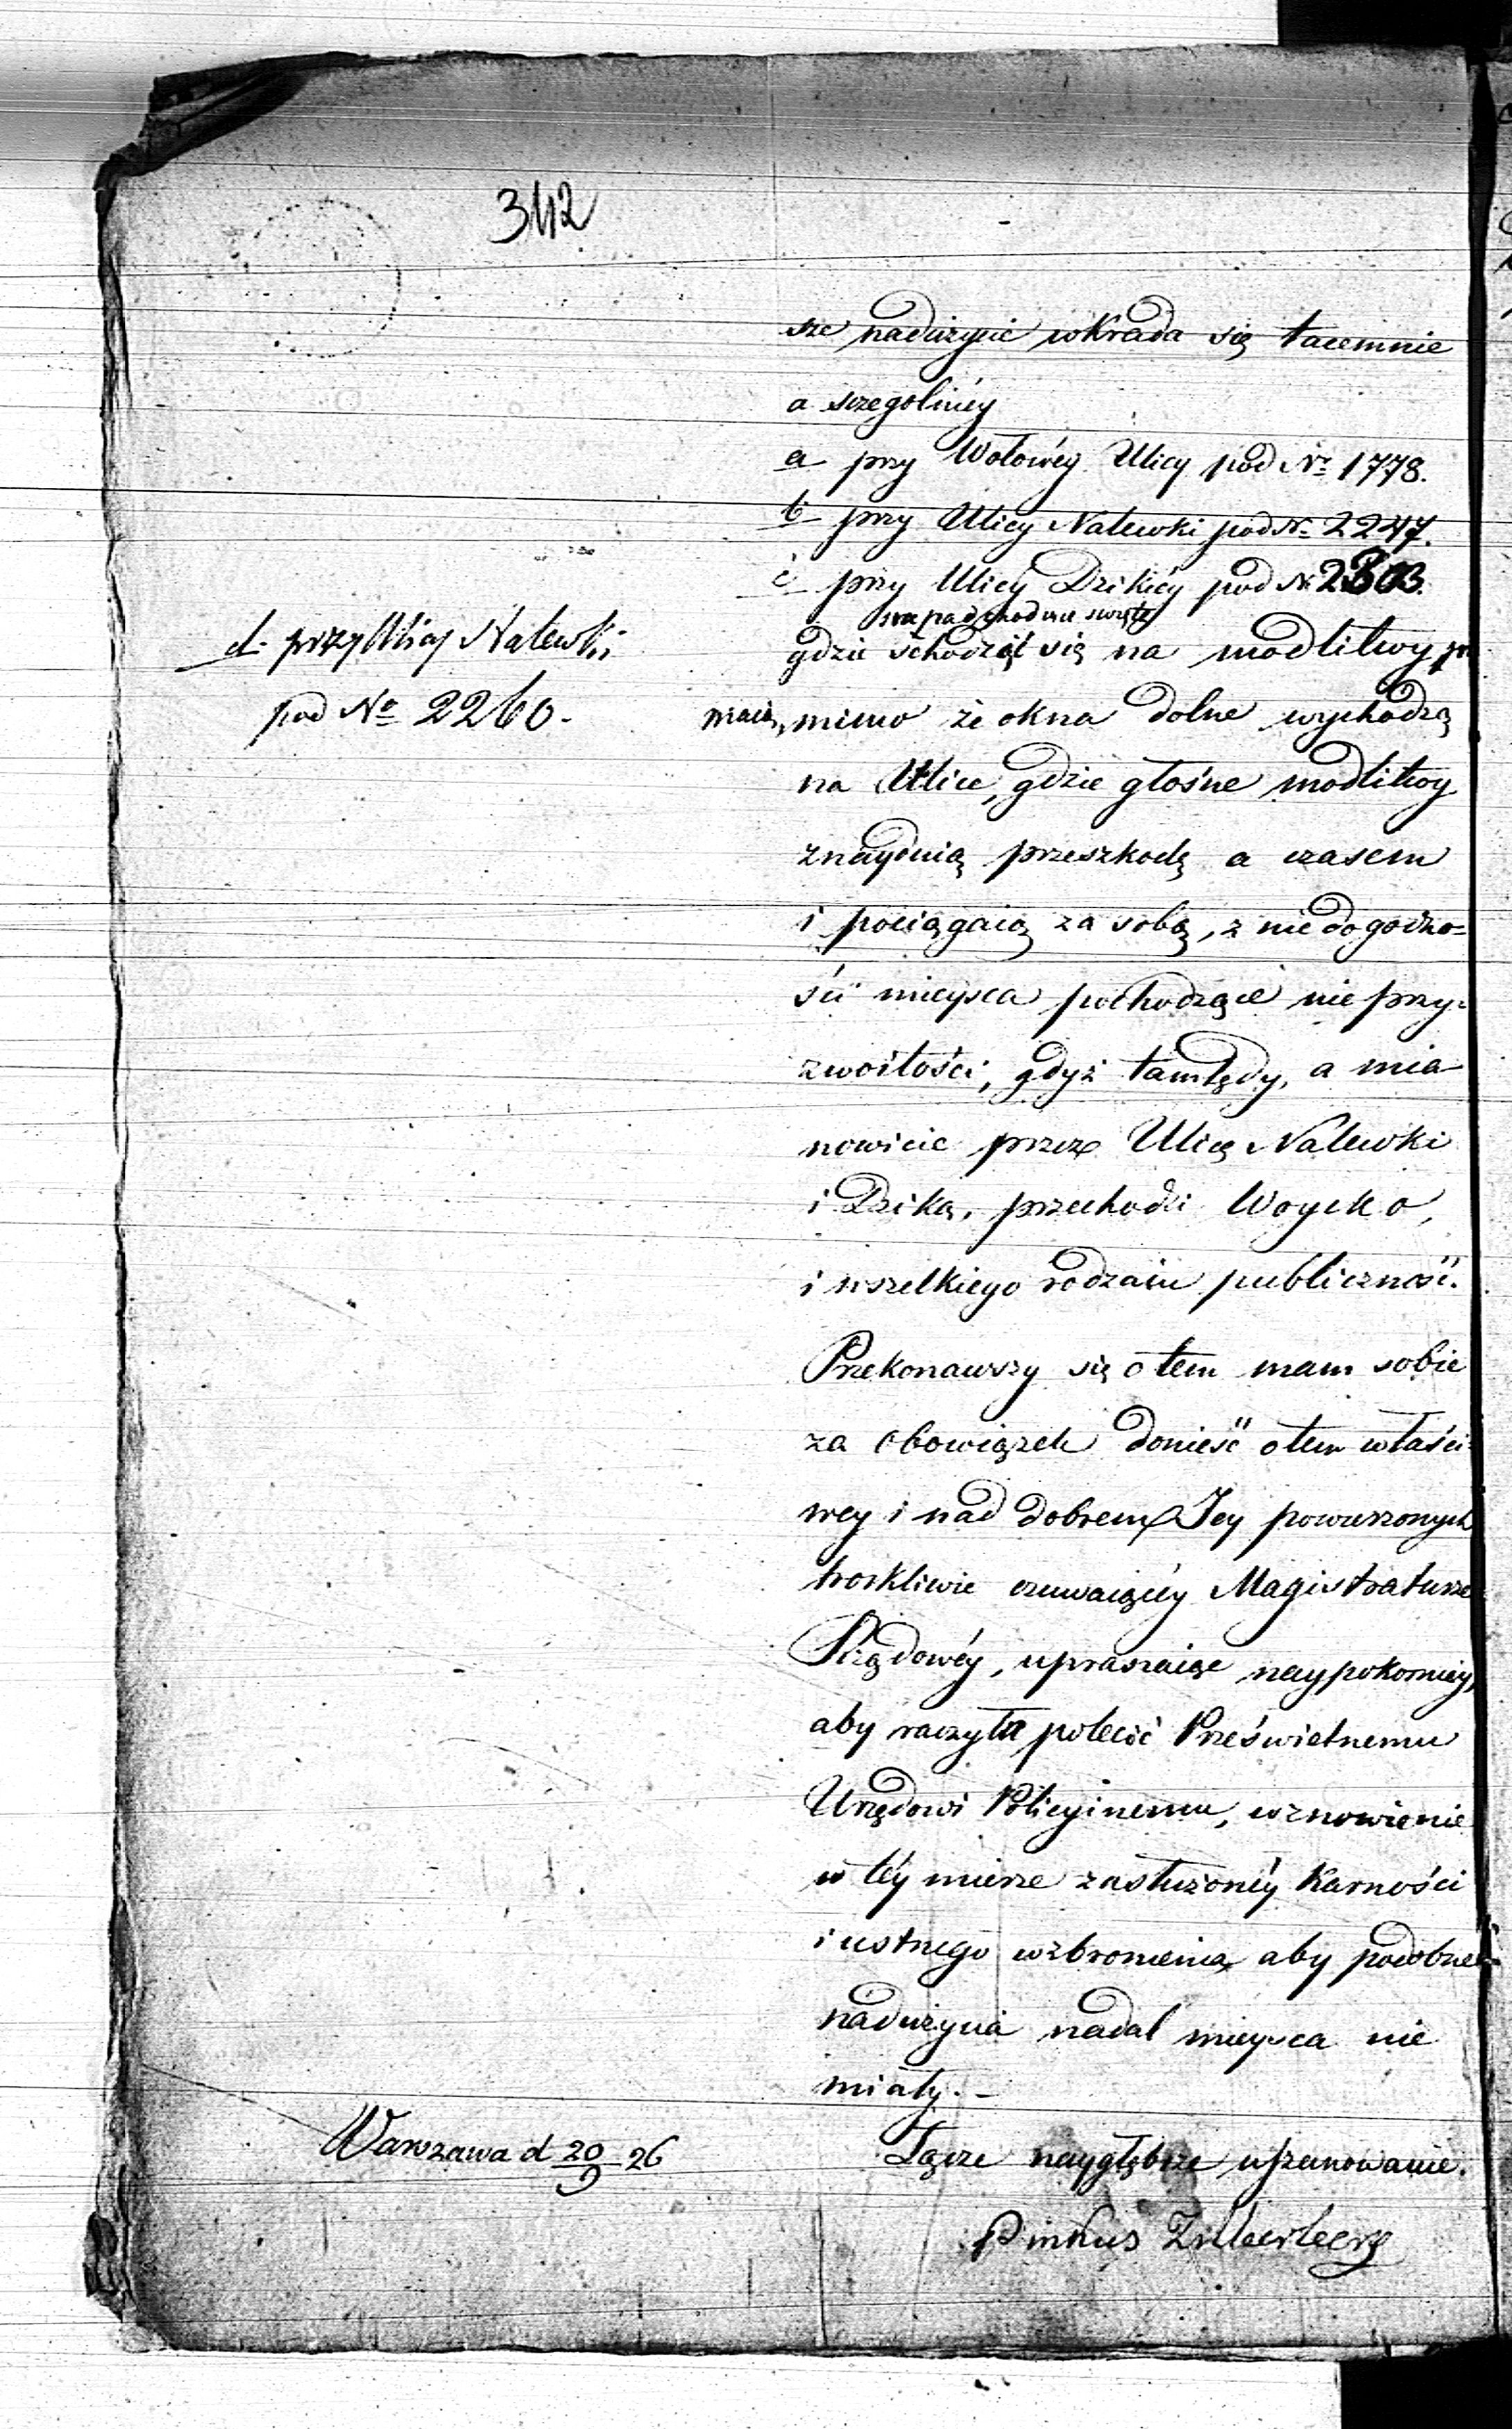 342
sze nadużycie wkrada się tacemnie
a szegolniéy
a przy Wołowéy Ulicy pod Nr 1778.
b przy Ulicy Nalewki pod Nr 2247.
c przy Ulicy Dzikiéy pod Nr 2303.
d. przy Ulicy Nalewki
pod No 2260.
na nadchodzące święte
gdzie schodzić się na modlitwy
maią, mimo że okna dolne wychodzą
na Ulice, gdzie głośne modlitwy
znayduią przeszkodę a czasem
i pociągaią za sobą, z nie dogodno=
ści mieysca pochodzące nie przy=
zwoitości, gdyż tamtędy, a mia
nowicie przez Ulicę Nalewki
i Dziką, przechodzi Woysko,
i wszelkiego rodzaiu publiczność.
Przekonawszy się o tem mam sobie
za obowiązek donieść o tem właści=
wey i nad dobrem Jey powierzonych
troskliwie czuwaiącéy Magistraturze
Rządowéy, upraszaiąc naypokorniéy,
aby raczyła polecić Prześwietnemu
Urzędowi Policyinemu, wznowienie
w téy mierze zasłużonéy Karności
i ustnego wzbronienia, aby podobne
nadużycia nadal mieysca nie
miały. -
Warszawa d 20/9 26
Łącze naygłębsze uszanowanie.
Pinkus Zilberberg